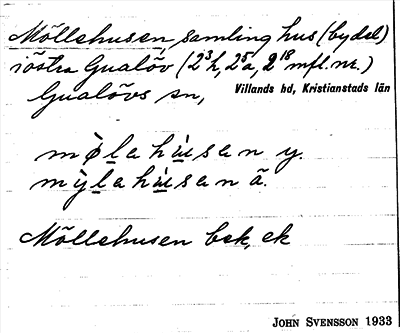 Möllehusen, samling hus (bydel)
i östra Gualöv (2³h, 2⁵a, 2¹⁸ m.fl. nr.)
Gualövs sn, Villands hd, Kristianstads län
mø̀lahu̇̀san y.
mỳlahu̇̀san ä.
Möllehusen bek, ek
JOHN SVENSSON 1933